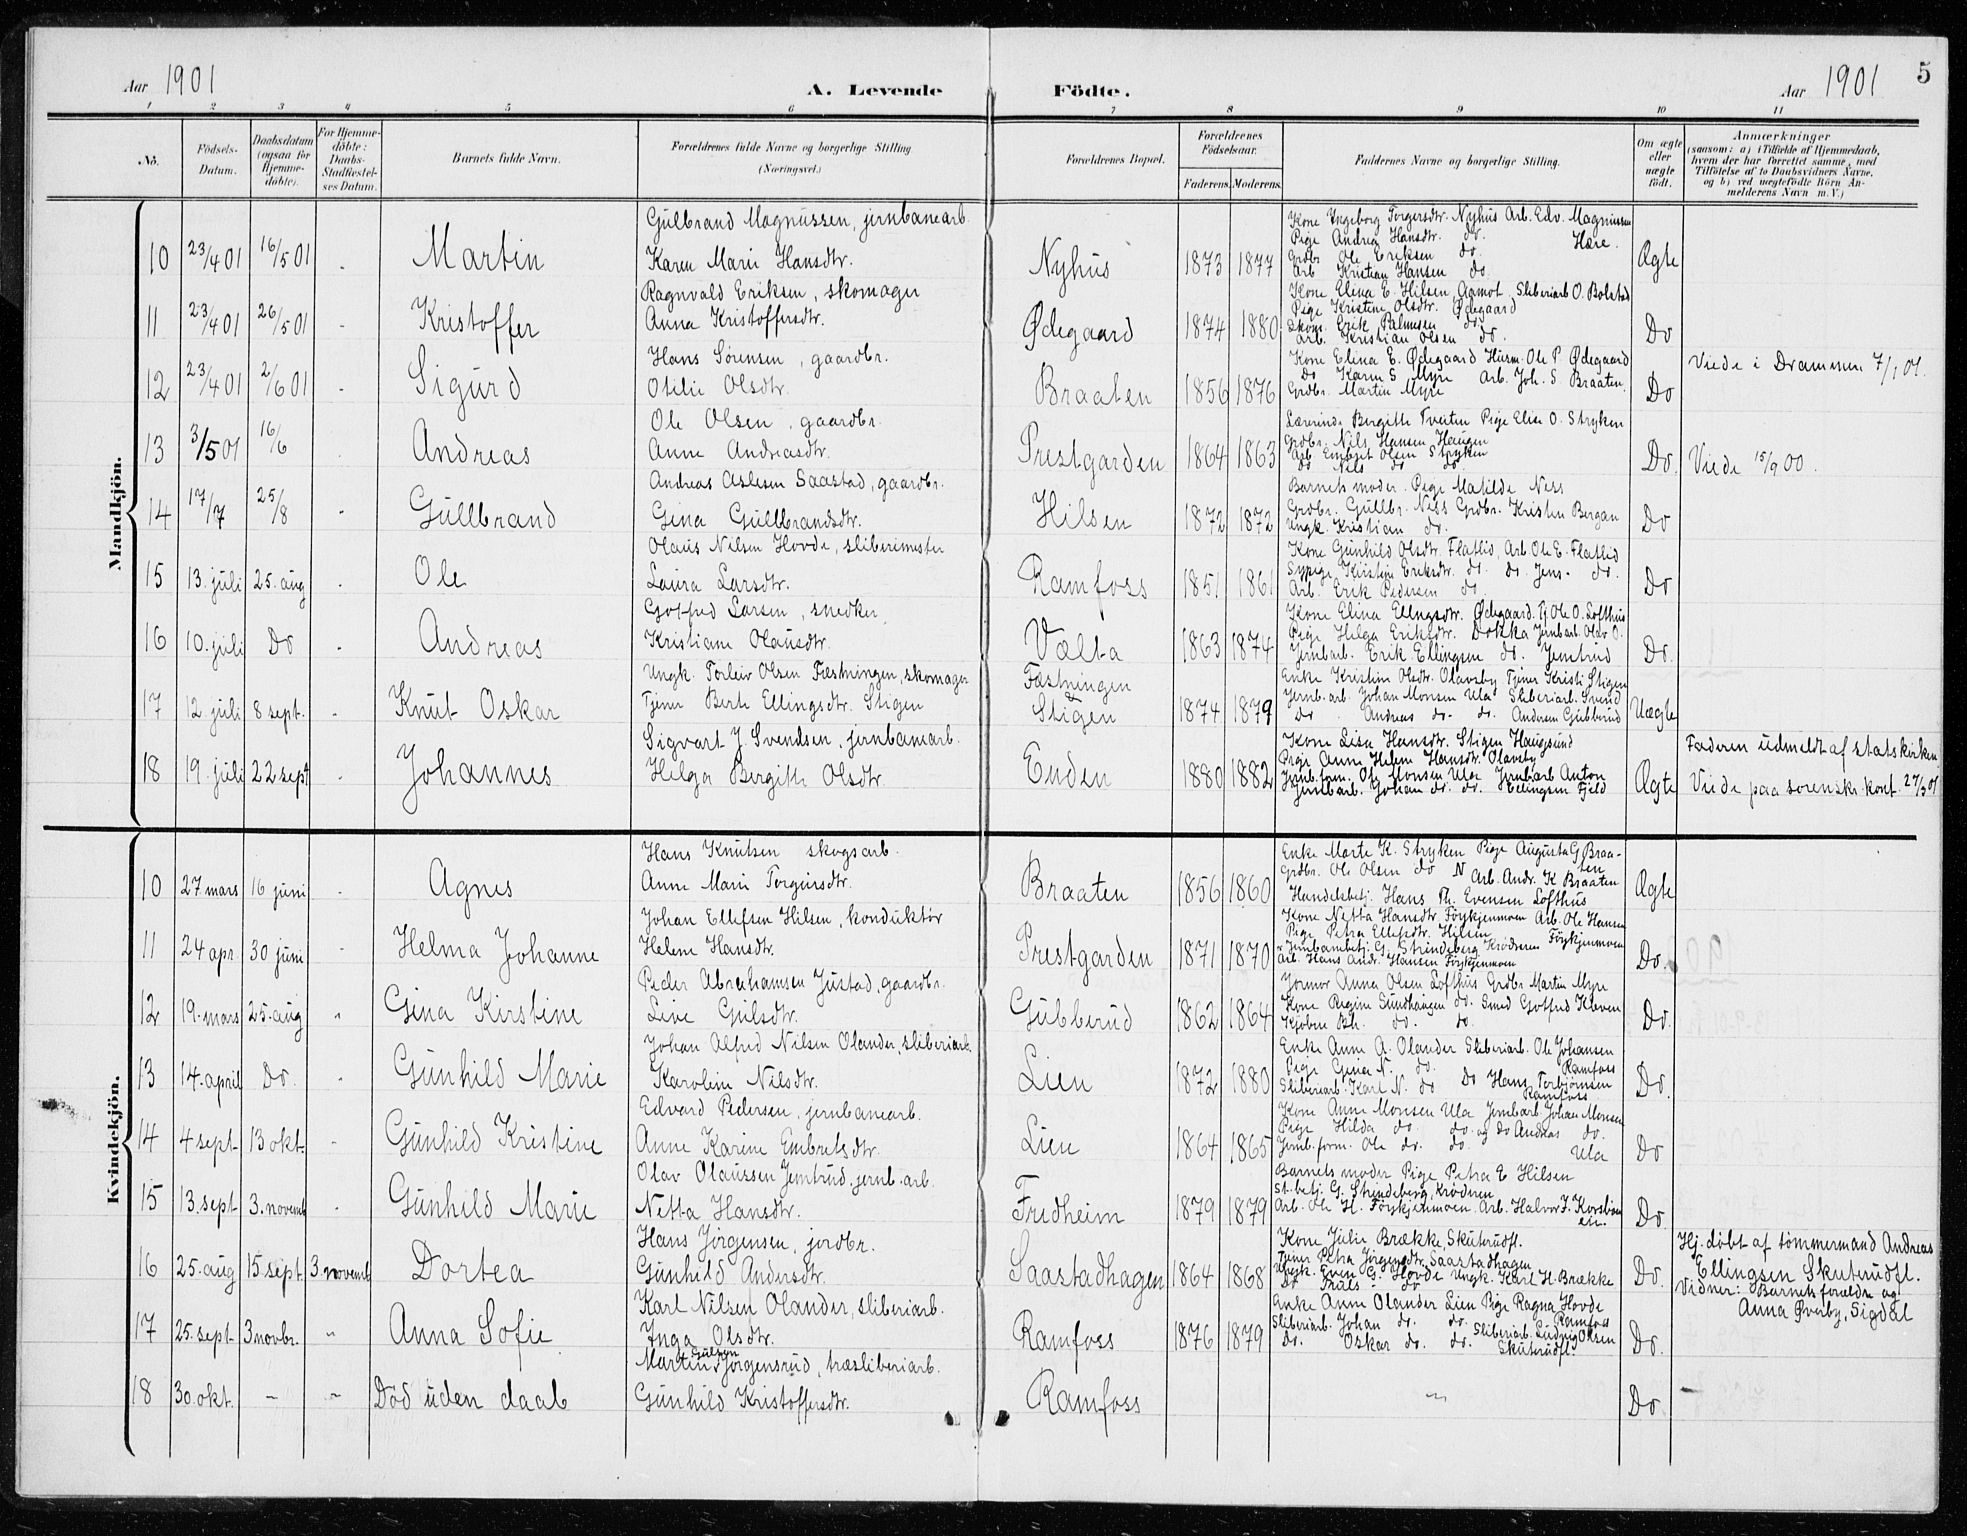 Aar 1901 A. Levende Födte. Aar 1901 5
1 2 3 4 5 6 7 8 9 10 11
No. Födsels-Datum. Daabsdatum (ogsaa for Hjemmedöbte). For Hjemmedöbte: Daabs-Stadfæstelses Datum. Barnets fulde Navn. Forældrenes fulde Navne og borgerlige Stilling (Næringsvei.) Forældrenes Bopæl. Forældrenes Födselsaar. Faderens. Moderens. Faddernes Navne og borgerlige Stilling. Om ægte eller uægte födt. Anmærkninger (saasom: a) i Tilfælde af Hjemmedaab, hvem der har forrettet samme, med Tilföielse af to Daabsvidners Navne, og b) ved uægtefödte Börn Anmelderens Navn m. V.)
Mandkjön.
Gulbrand Magnussen, jernbanearb. Kone Ingeborg Torgersdtr. Nyhus Arb. Edv. Magnussen
Pige Andrea Hansdtr. do. Hære.
10 23/4 01 16/5 01 Martin Karen Marie Hansdtr. Nyhus 1873 1877 Grdbr. Ole Eriksen do. Ægte
Arb. Kristian Hansen do.
Ragnvald Eriksen, skomager Kone Elina E. Hilsen, Aamot Sliberiarb O. Bolstad
Pige Kristine Olsdtr. Ødegaard
11 23/4 01 26/5 01 Kristoffer Anna Kristoffersdtr. Ødegaard 1874 1880 Skom. Erik Palmesen do. Do
Arb. Kristian Olsen do.
Hans Sørensen, gaardbr. Kone Elina E. Ødegaard Husm. Ole P. Ødegaard Viede i Drammen 7/1 01.
Do Karen S. Myre Arb. Joh. S Braaten.
12 23/4 01 2/6 01 Sigurd Otilie Olsdtr. Braaten 1856 1876 Grdbr. Martin Myre Do
Ole Olsen, gaardbr. Lærerinde Bergitte Tveiten Pige Elise O. Stryken
Grdbr. Nils Hansen Haugen
13 3/5 01 16/6 Andreas Anne Andreasdtr. Prestgarden 1864 1863 Arb Embret Olsen Stryken Do. Viede 15/9 00.
do Nils do do.
Andreas Aslesen Saastad, gaardbr. Barnets moder. Pige Matilde Ness
14 17/7 25/8 Gullbrand Gina Gullbrandsdtr. Hilsen 1872 1872 Grdbr. Gullbr. Ness Grdbr. Kristen Bergan Do
Ungk. Kristian do.
Olaus Nilsen Hovde, sliberimester Kone Gunhild Olsdtr. Flatlid, Arb Ole E. Flatlid
15 13. juli 25. aug Ole Laura Larsdtr. Ramfoss 1851 1861 Sypige Kristine Eriksdtr. do. do. Jens do. Do
Arb. Erik Pedersen do
Gotfred Larsen, snedker Kone Elina Ellingsdtr. Ødegaard. Pf. Ole O. Lofthus
16 10. juli Do Andreas Kristiane Olausdtr. Vælta 1863 1874 Pige Helga Eriksdtr. Dokka Jernbarb. Olav O. Do.
Jernbarb. Erik Ellingsen do. Jemtrud
Ungk. Torleiv Olsen Fæstningen, skomager Fæstningen Enke Kristine Olsdtr. Olavsby Tjener Kristi Stigen
17 12. juli 8 sept. Knut Oskar Tjener Berte Ellingsdtr. Stigen Stigen 1874 1879 Jernb. arb. Johan Monsen Ula Sliberiarb. Svend Uægte
Do Andreas do. do. Andersen Gubberud
Sigvart J. Svendsen, jernbanearb. Kone Lisa Hansdtr. Stigen Haugsund Faderen udmeldt af statskirken.
Pige Anne Helene Hansdtr. Olavsby
18 19. juli 22 sept Johannes Helga Bergitte Olsdtr. Enden 1880 1882 Jernb. form. Ole Monsen Ula Jernbarb Anton Ægte Viede paa sorenskr. kont. 27/3 01
Jernbarb. Johan do. do. Ellingsen Fjeld
Kvindekjön.
Hans Knutsen skogsarb. Enke Marte K. Stryken Pige Augusta G Braaten
10 27 mars 16 juni Agnes Anne Marie Torgersdtr. Braaten 1856 1860 Grdbr. Ole Olsen do N Arb. Andr. K Braaten Ægte
Handelsbetj. Hans Th. Evensen Lofthus
Johan Ellefsen Hilsen, konduktør Kone Netta Hansdtr. Föykjenmoen Arb. Ole Hansen
Pige Petra Ellefsdtr. Hilsen Föykjenmoen
11 24 apr 30 juni Helma Johanne Helene Hansdtr. Prestgarden 1871 1870 Jernbanebetj. G. Strindeberg Krøderen Do.
Arb. Hans Andr. Hansen Föykjenmoen
Peder Abrahamsen Justad, gaardbr. Jormor Anna Olsen Lofthus Grdbr Martin Myre
12 19. mars 25. aug Gina Kirstine Live Gulsdtr. Gubberud 1862 1864 Kone Regine Sundhaugen do. Smed Gotfred Kleven Do.
do. do.
Johan Alfred Nilsen Olander, sliberiarb. Enke Anne A. Olander Sliberiarb. Ole Johansen
13 14. april Do. Gunhild Marie Karoline Nilsdtr. Lien 1872 1880 Pige Gina N. do. Ramfoss Do.
Sliberiarb. Karl N. do Do Hans Torbjörnsen Ramfoss
Edvard Pedersen, jernbanearb. Kone Anne Monsen Ula Jernbarb. Johan Monsen
14 4 sept 13 okt. Gunhild Kristine Anne Karine Embretsdtr. Lien 1864 1865 Pige Hilda do. do. og do Andreas do. Do
Jernb. form. Ole do. do. Ula
Olav Olaussen Jemtrud, jernb. arb. Barnets moder Pige Petra E Hilsen
St. betj. G. Strendeberg, Krøderen
15 13. sept 3. novemb Gunhild Marie Netta Hansdtr. Fredheim 1879 1879 Arb. Ole H. Föykjenmoen Arb. Halvor J. Korsbøen Do.
Hans Jörgensen, jordbr. Kone Julie Brække, Skuterudfl. Hj. døbt af tømmermand Andreas
Tjener Petra Jörgensdtr. Saastadhagen Ellingsen Skuterudfl.
16 25. aug 15. sept 3. novemb Dortea Gunhild Andersdtr. Saastadhagen 1864 1868 Ungk. Even G. Hovde Ungk. Karl H. Brække Do. Vidner: Barnets forældre og
Do Truls do Anna Øverby, Sigdal
Karl Nilsen Olander, sliberiarb. Enke Anne Olander Lien Pige Ragna Hovde
17 25. sept 3 novbr. Anna Sofie Inga Olsdtr. Ramfoss 1876 1879 Sliberiarb. Johan do. do. Ramfoss Do.
do. Oskar do. do. Sliberiarb. Ludvig Olsen Skuterudfl.
Martin Gulsen Jörgensrud, træsliberiarb.
18 30. okt. Död uden daab Gunhild Kristoffersdtr. Ramfoss Do.